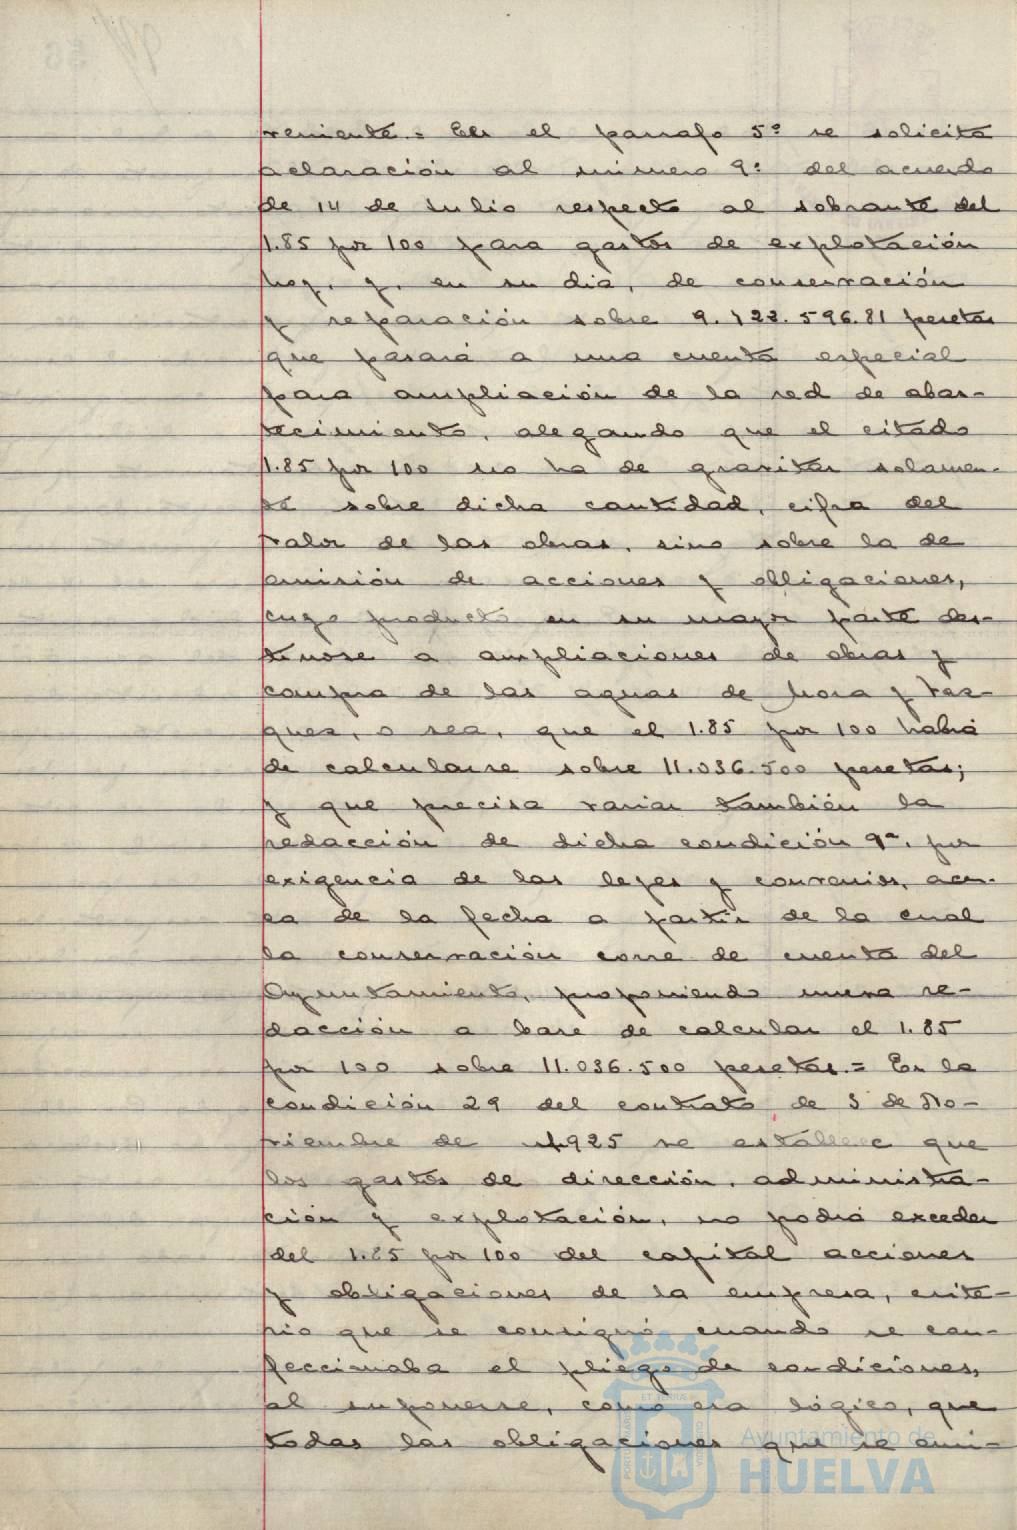 veniente.= En el parrafo 5º se solicita
aclaración al número 9º del acuerdo
de 14 de Julio respecto al sobrante del
1.85 por 100 para gastos de explotación
hoy, y, en su dia, de conservación
y reparación sobre 9.122.596.81 pesetas
que pasará a una cuenta especial
para ampliación de la red de abas-
tecimiento, alegando que el citado
1.85 por 100 no ha de gravitar solamen-
te sobre dicha cantidad, cifra del
valor de las obras, sino sobre la de
emisión de acciones y obligaciones,
cuyo producto en su mayor parte des-
tinose a ampliaciones de obras y
compra de las aguas de Mora y Vaz-
quez, o sea, que el 1.85 por 100 habrá
de calcularse sobre 11.036.500 pesetas;
y que precisa variar también la
redacción de dicha condición 9ª, por
exigencia de las leyes y convenios, acer-
ca de la fecha a partir de la cual
la conservación corre de cuenta del
Ayuntamiento, proponiendo nueva re-
dacción a base de calcular el 1.85
por 100 sobre 11.036.500 pesetas.= En la
condición 29 del contrato de 5 de No-
viembre de 1925 se establece que
los gastos de dirección, administra-
ción y explotación, no podrá exceder
del 1.85 por 100 del capital acciones
y obligaciones de la empresa, crite-
rio que se consignó cuando se con-
feccionaba el pliego de condiciones,
al suponerse, como era lógico, que
todas las obligaciones que se emi-
Ayuntamiento de
HUELVA